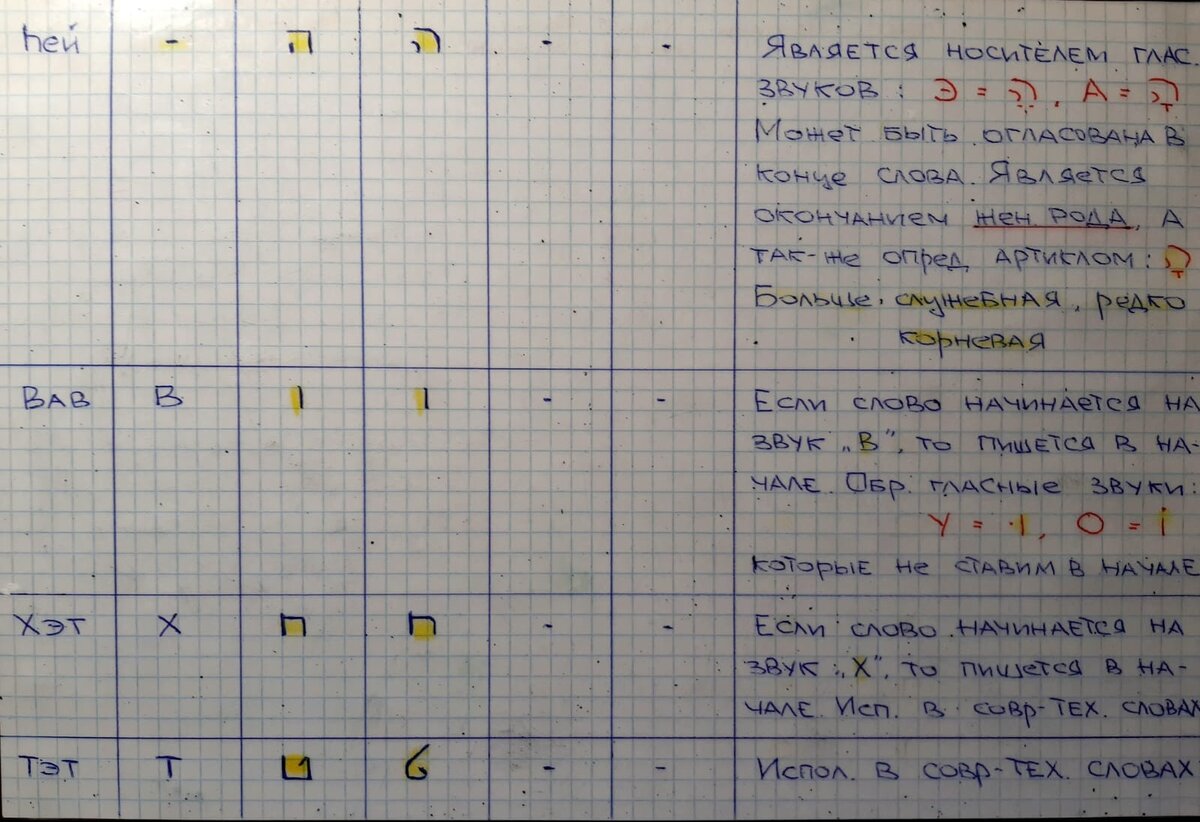 hей - ה ה - - Является носителем глас.
звуков: Э = הֵ, А = הָ
Может быть огласована в
конце слова. Является
окончанием жен рода, а
так-же опред артиклом: הָ
Больше служебная, редко
корневая
Вав В ו ו - - Если слово начинается на
звук „В", то пишется в на-
чале. Обр. гласные звуки:
У = וּ, О = וֹ
которые не ставим в начале
Хэт Х ח ח - - Если слово начинается на
звук „Х", то пишется в на-
чале. Исп. в совр-тех. словах
Тэт Т ט ט - - Испол. в совр-тех. словах